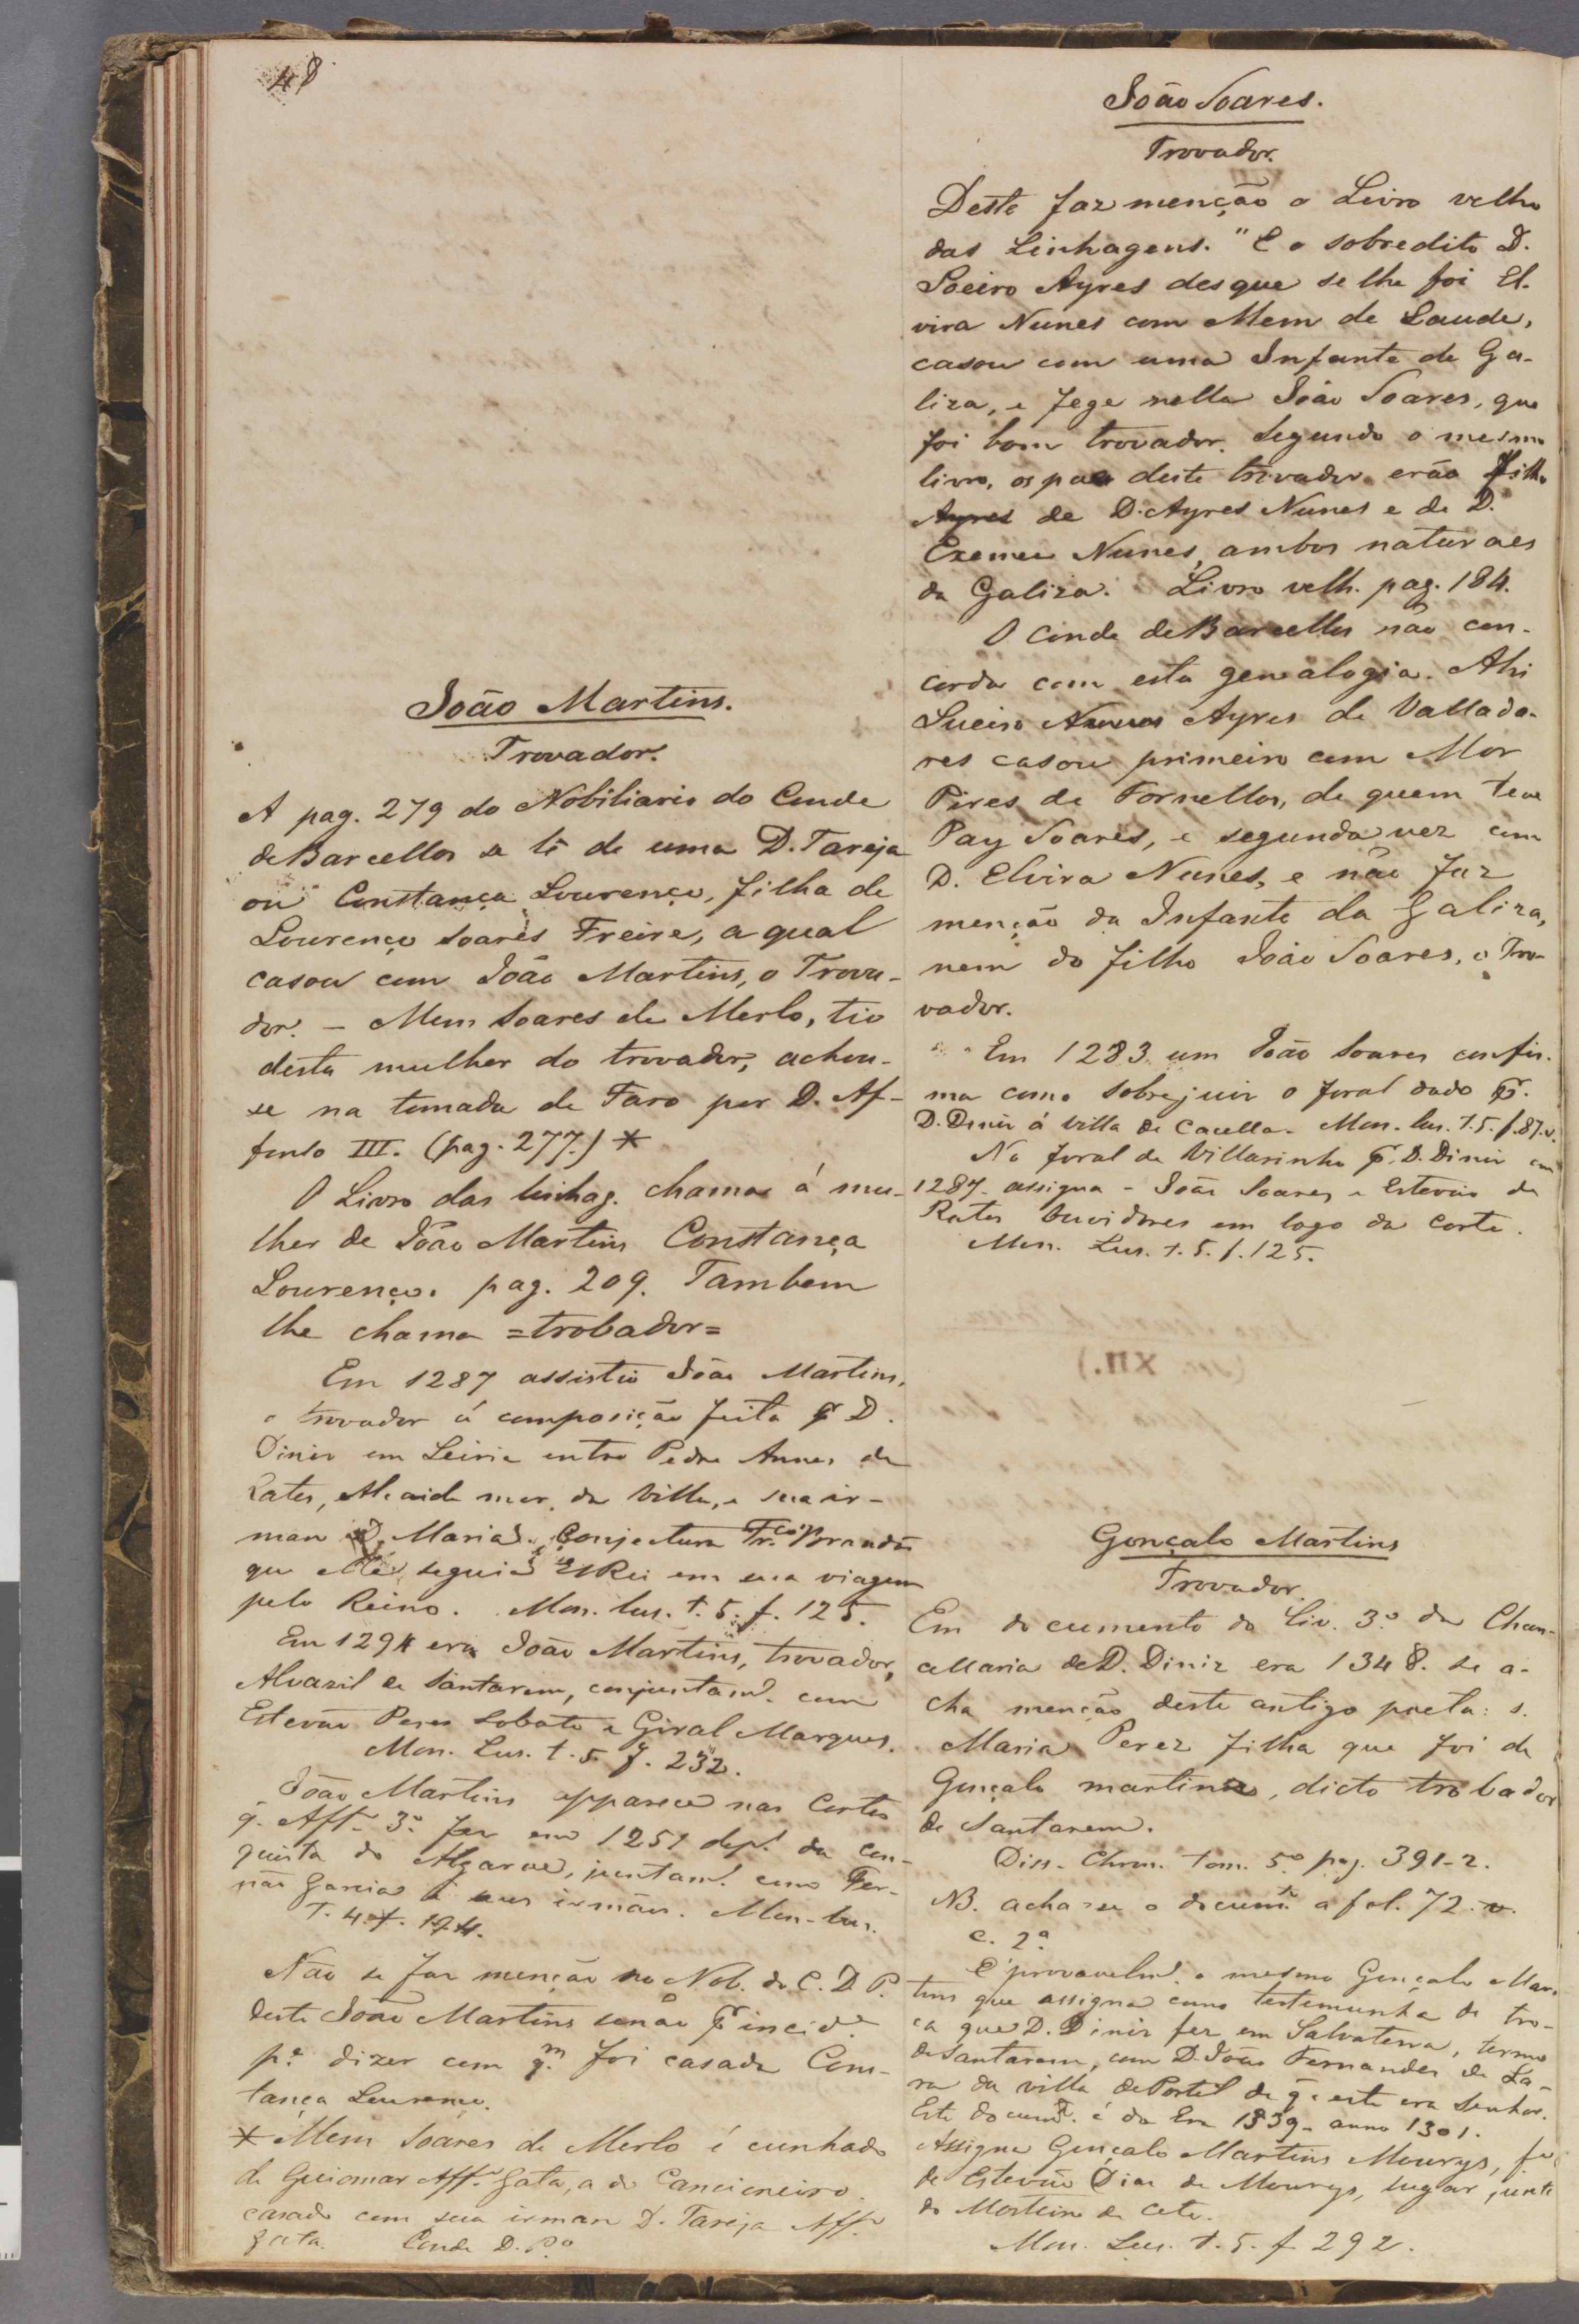 48
João Martins.
Trovador.
A pag. 279 do Nobiliario do Conde
de Barcellos se lê de uma D. Tareja
ou Constança Lourenço, filha de
Lourenço Soares Freire, a qual
casou com João Martins, o Trova-
dor. — Mem Soares de Merlo, tio
desta mulher do trovador, achou-
se na tomada de Faro por D. Af-
fonso III. (pag. 277.) *
O Livro das linhag. chama á mu-
lher de João Martins Constança
Lourenço. pag. 209. Tambem
lhe chama =trobador=
Em 1287 assistio João Martins,
o trovador á composição feita pr D.
Diniz em Leiria entre Pedro Annes de
Rates, Alcaide mor da Villa, e sua ir-
man D. Maria. Conjectura Fr.co Brandão
que elle seguia ElRei em sua viagem
pelo Reino. Mon. lus. t. 5. f. 125.
Em 1294 era João Martins, trovador,
Alvazil de Santarem, conjuntamt. com
Estevão Peres Lobato e Giral Marques.
Mon. Lus. t. 5. f. 232.
João Martins apparece nas Cortes
q. Aff.º 3.º fez em 1251 dep.s da con-
quista do Algarve, juntamt. com Fer-
não Garcia e seus irmãos. Mon. lus.
T. 4. f. 194.
Não se faz menção no Nob. do C. D. P.
deste João Martins senão pr incid.e
p.a dizer com q.m foi casada Cons-
tança Lourenço.
* Mem Soares de Merlo é cunhado
de Guiomar Aff.º Gata, a do Cancioneiro.
casado com sua irman D. Tareja Aff.º
Gata. Conde D. P.º
João Soares.
Trovador.
Deste faz menção o Livro velho
das Linhagens. "E o sobredito D.
Soeiro Ayres desque se lhe foi El-
vira Nunes com Mem de Laude,
casou com uma Infante de Ga-
liza, e fege nella João Soares, que
foi bom trovador. Segundo o mesmo
livro, os paes deste trovador erão filho
Ayres de D. Ayres Nunes e de D.
Exemea Nunes, ambos naturaes
da Galiza. Livro velh. pag. 184.
O Conde de Barcellos não con-
corda com esta genealogia. Ahi
Sueiro Nunes Ayres de Vallada-
res casou primeiro com Mor
Pires de Fornellos, de quem teve
Pay Soares, e segunda vez com
D. Elvira Nunes, e não faz
menção da Infante da Galiza,
nem do filho João Soares, o Tro-
vador.
Em 1283 um João Soares confir-
ma como sobrejuiz o foral dado pr.
D. Diniz á Villa de Cacella. Mon. lus. t. 5. f. 87. v.
No foral de Villarinho pr. D. Diniz em
1287 assigna - João Soares e Estevão de
Rates ouvidores em logo da corte.
Mon. Lus. t. 5. f. 125.
Gonçalo Martins
Trovador.
Em documento do Liv. 3.º da Chan-
cellaria de D. Diniz era 1348. se a-
cha menção deste antigo poeta: s.
Maria Perez filha que foi de
Gonçalo martins, dicto trobador
de Santarem.
Diss. Chron. tom. 5.º pag. 391-2.
NB. acha-se o documt.o a fol. 72. v.
c. 2.ª
É provavelmt. o mesmo Gonçalo Mar-
tins que assigna como testemunha da tro-
ca que D. Diniz fez em Salvaterra, termo
de Santarem, com D. João Fernandes de Li-
ra da villa de Portel de q. este era Senhor.
Este documt. é da Era 1339- anno 1301.
Assigna Gonçalo Martins Mourys, fo
de Estevão Dias de Mourys, lugar junto
do Mosteiro de Cete.
Mon. Lus. t. 5. f. 292.